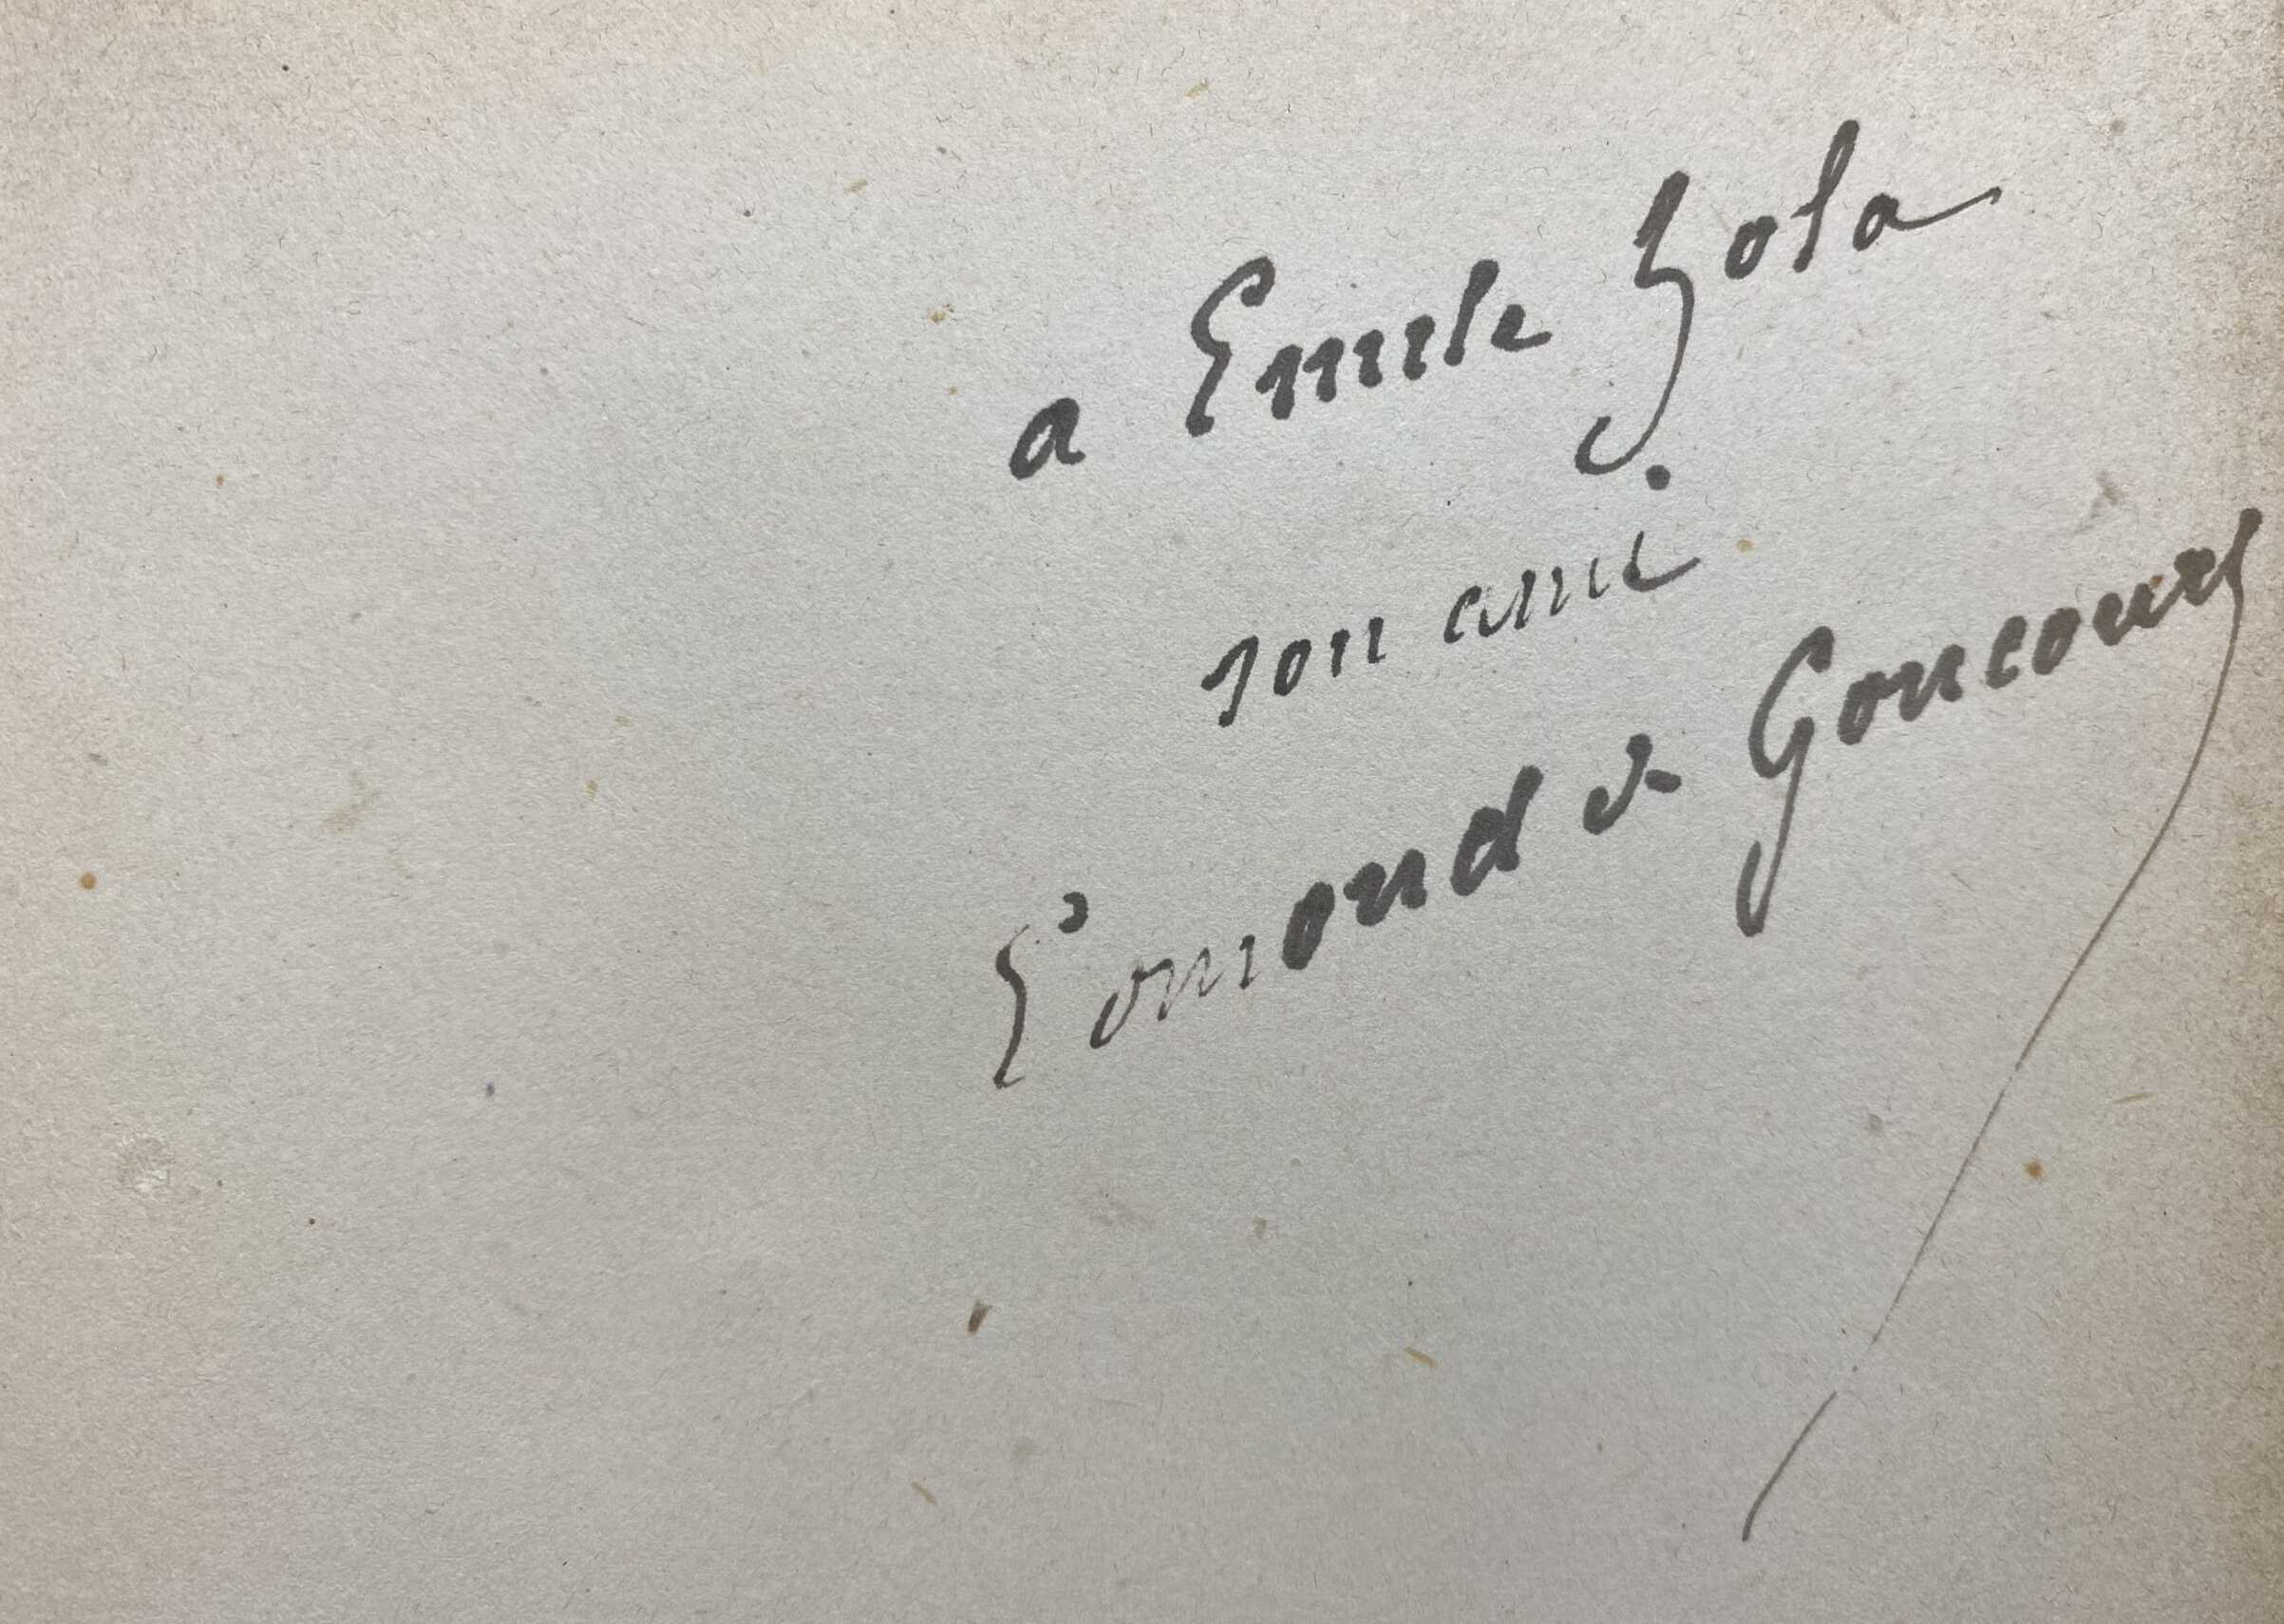 a Emile Zola
son ami
Edmond de Goncourt